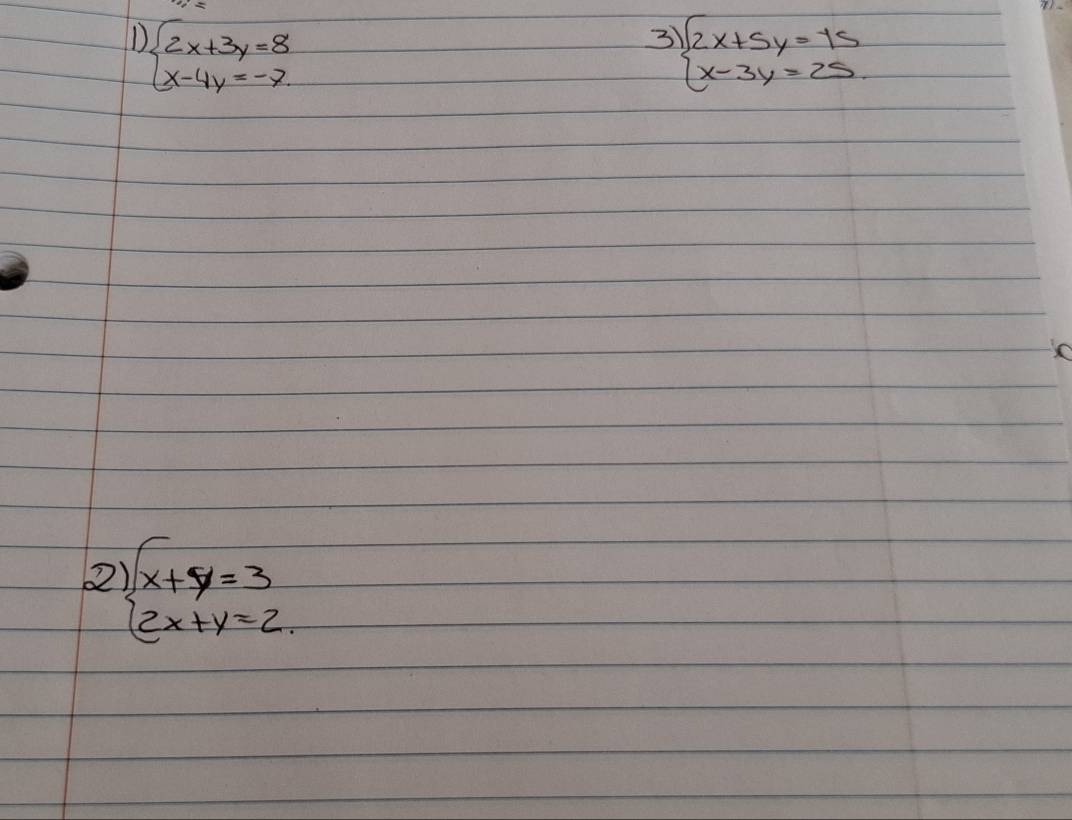 1) { 2x+3y=8
x-4y=-7.
3) { 2x+5y=15
x-3y=25.
2) { x+y=3
2x+y=2.